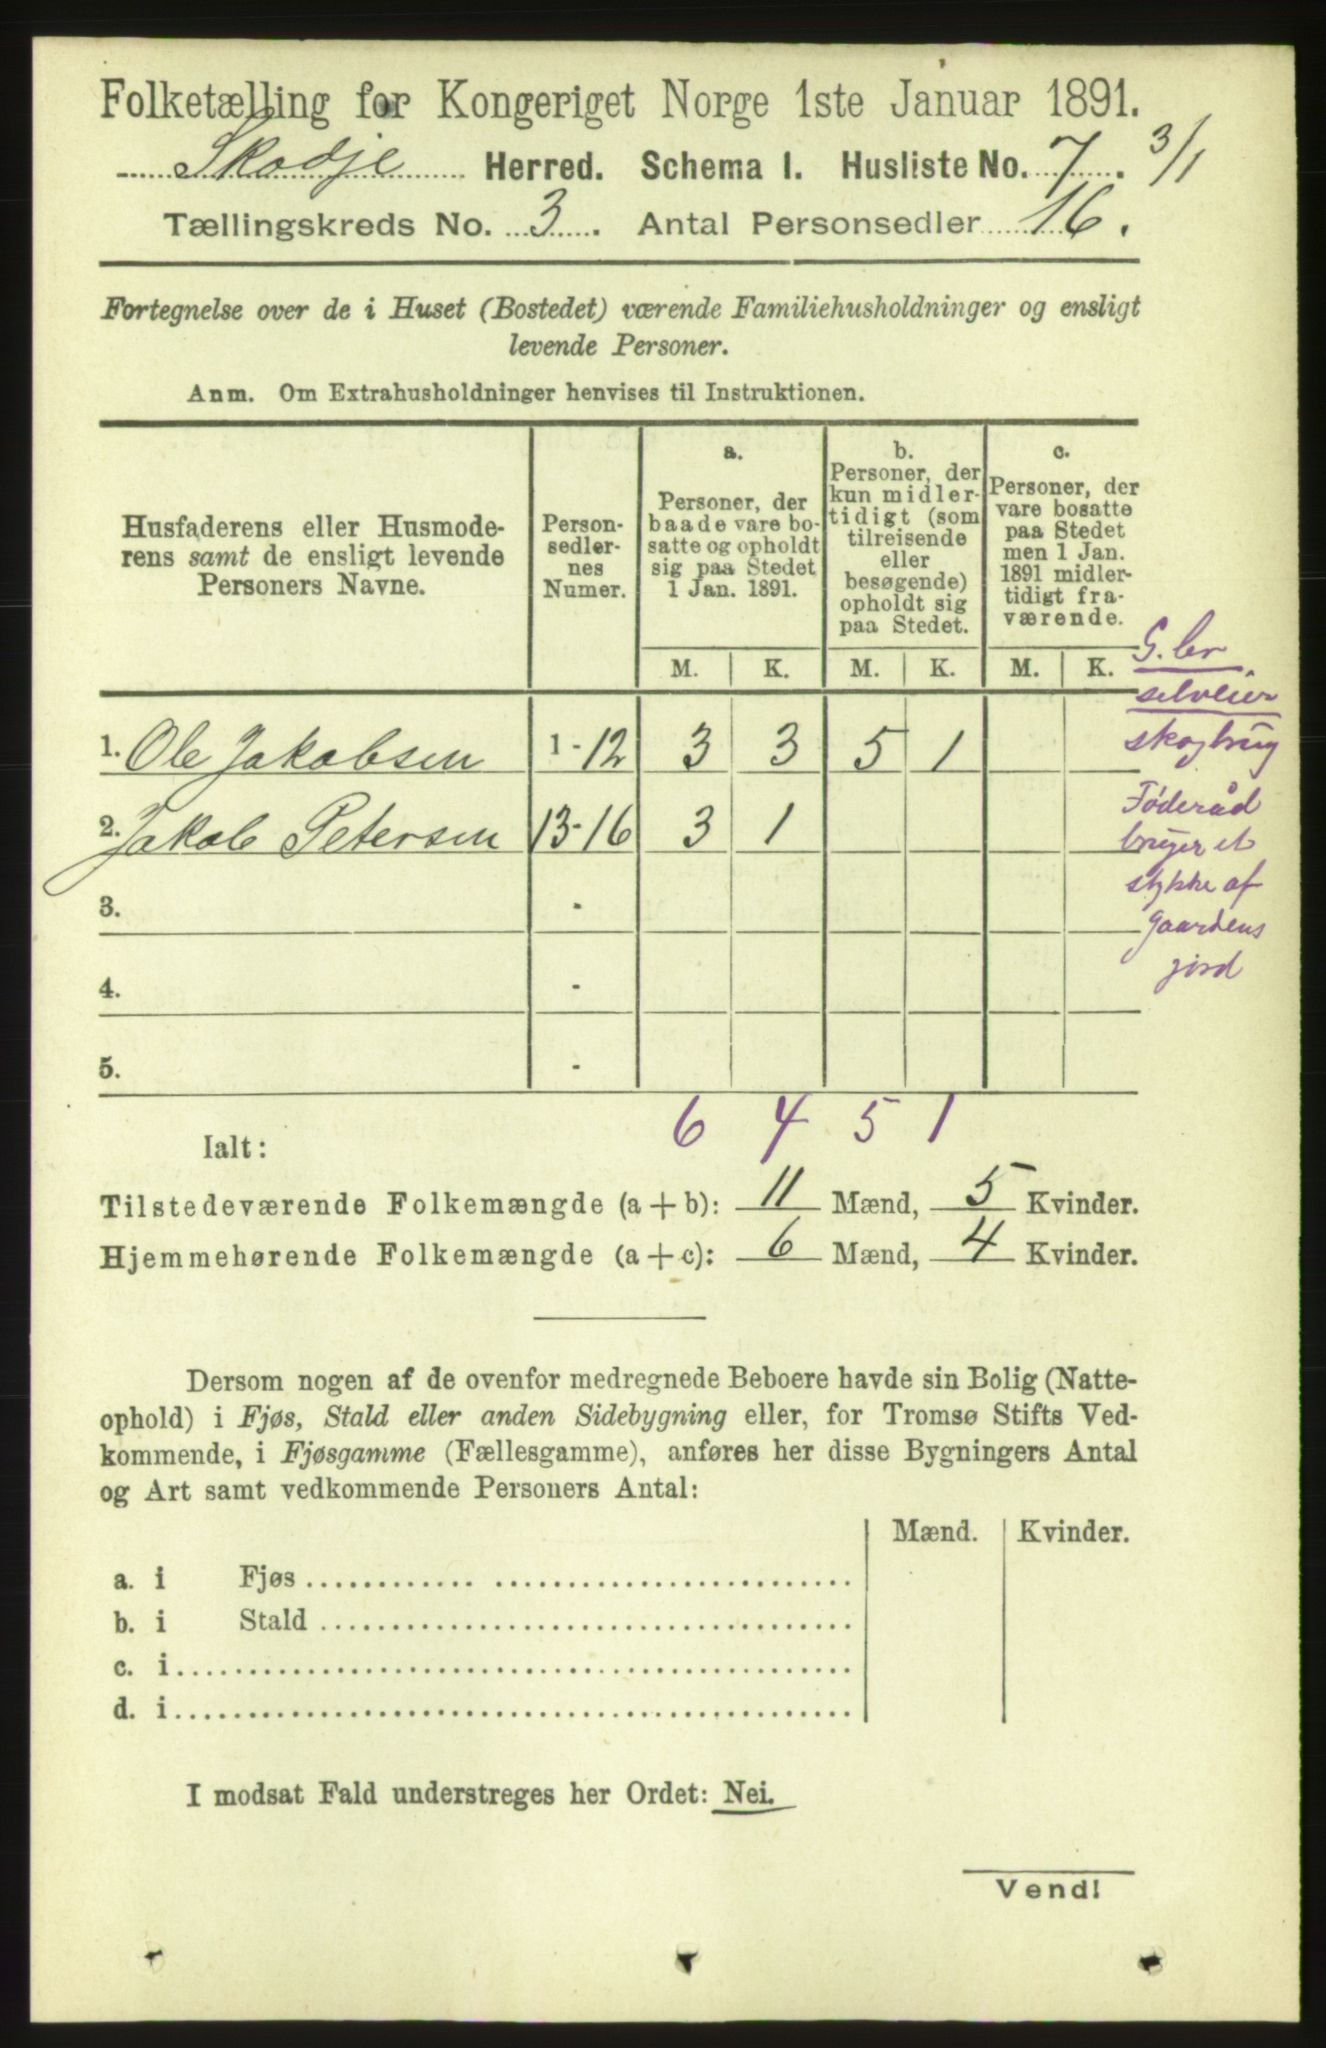 Folketælling for Kongeriget Norge 1ste Januar 1891.
Skodje Herred. Schema I. Husliste No. 7. 3/1
Tællingskreds No. 3. Antal Personsedler 16.
Fortegnelse over de i Huset (Bostedet) værende Familiehusholdninger og ensligt
levende Personer.
Anm. Om Extrahusholdninger henvises til Instruktionen.
Husfaderens eller Husmode-
rens samt de ensligt levende
Personers Navne.
Person-
sedler-
nes
Numer.
a.
Personer, der
baade vare bo-
satte og opholdt
sig paa Stedet
1 Jan. 1891.
b.
Personer, der
kun midler-
tidigt (som
tilreisende
eller
besøgende)
opholdt sig
paa Stedet.
c.
Personer, der
vare bosatte
paa Stedet
men 1 Jan.
1891 midler-
tidigt fra-
værende.
M. K. M. K. M. K.
G. br
selveier
skogbrug
1. Ole Jakobsen 1-12 3 3 5 1
Føderåd
bruger et
stykke af
Gaardens
jord
2. Jakob Petersen 13-16 3 1
3. -
4. -
5. -
Ialt: 6 4 5 1
Tilstedeværende Folkemængde (a+b): 11 Mænd, 5 Kvinder.
Hjemmehørende Folkemængde (a+c): 6 Mænd, 4 Kvinder.
Dersom nogen af de ovenfor medregnede Beboere havde sin Bolig (Natte-
ophold) i Fjøs, Stald eller anden Sidebygning eller, for Tromsø Stifts Ved-
kommende, i Fjøsgamme (Fællesgamme), anføres her disse Bygningers Antal
og Art samt vedkommende Personers Antal:
Mænd. Kvinder.
a. i Fjøs
b. i Stald
c. i
d. i
I modsat Fald understreges her Ordet: Nei.
Vend!